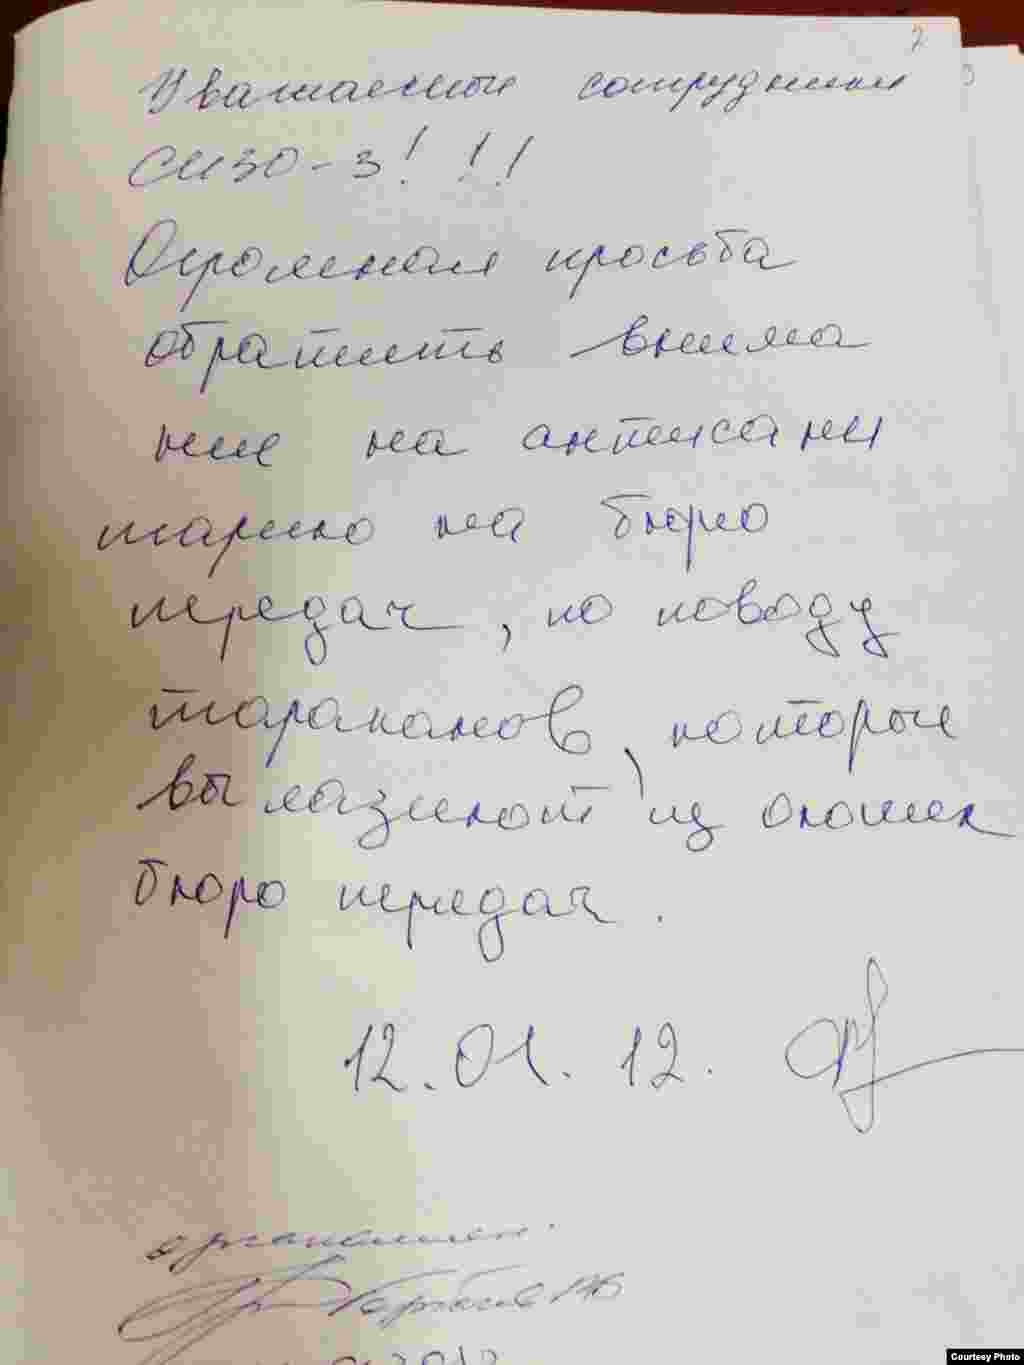 2
Уважаемые сотрудники
СИЗО-3! ! !
Огромная просьба
обратить внима
ние на антисани
тарию на бюро
передач, по поводу
тараканов, которые
вылазиют из окошек
бюро передач.
12.01.12.
Courtesy Photo